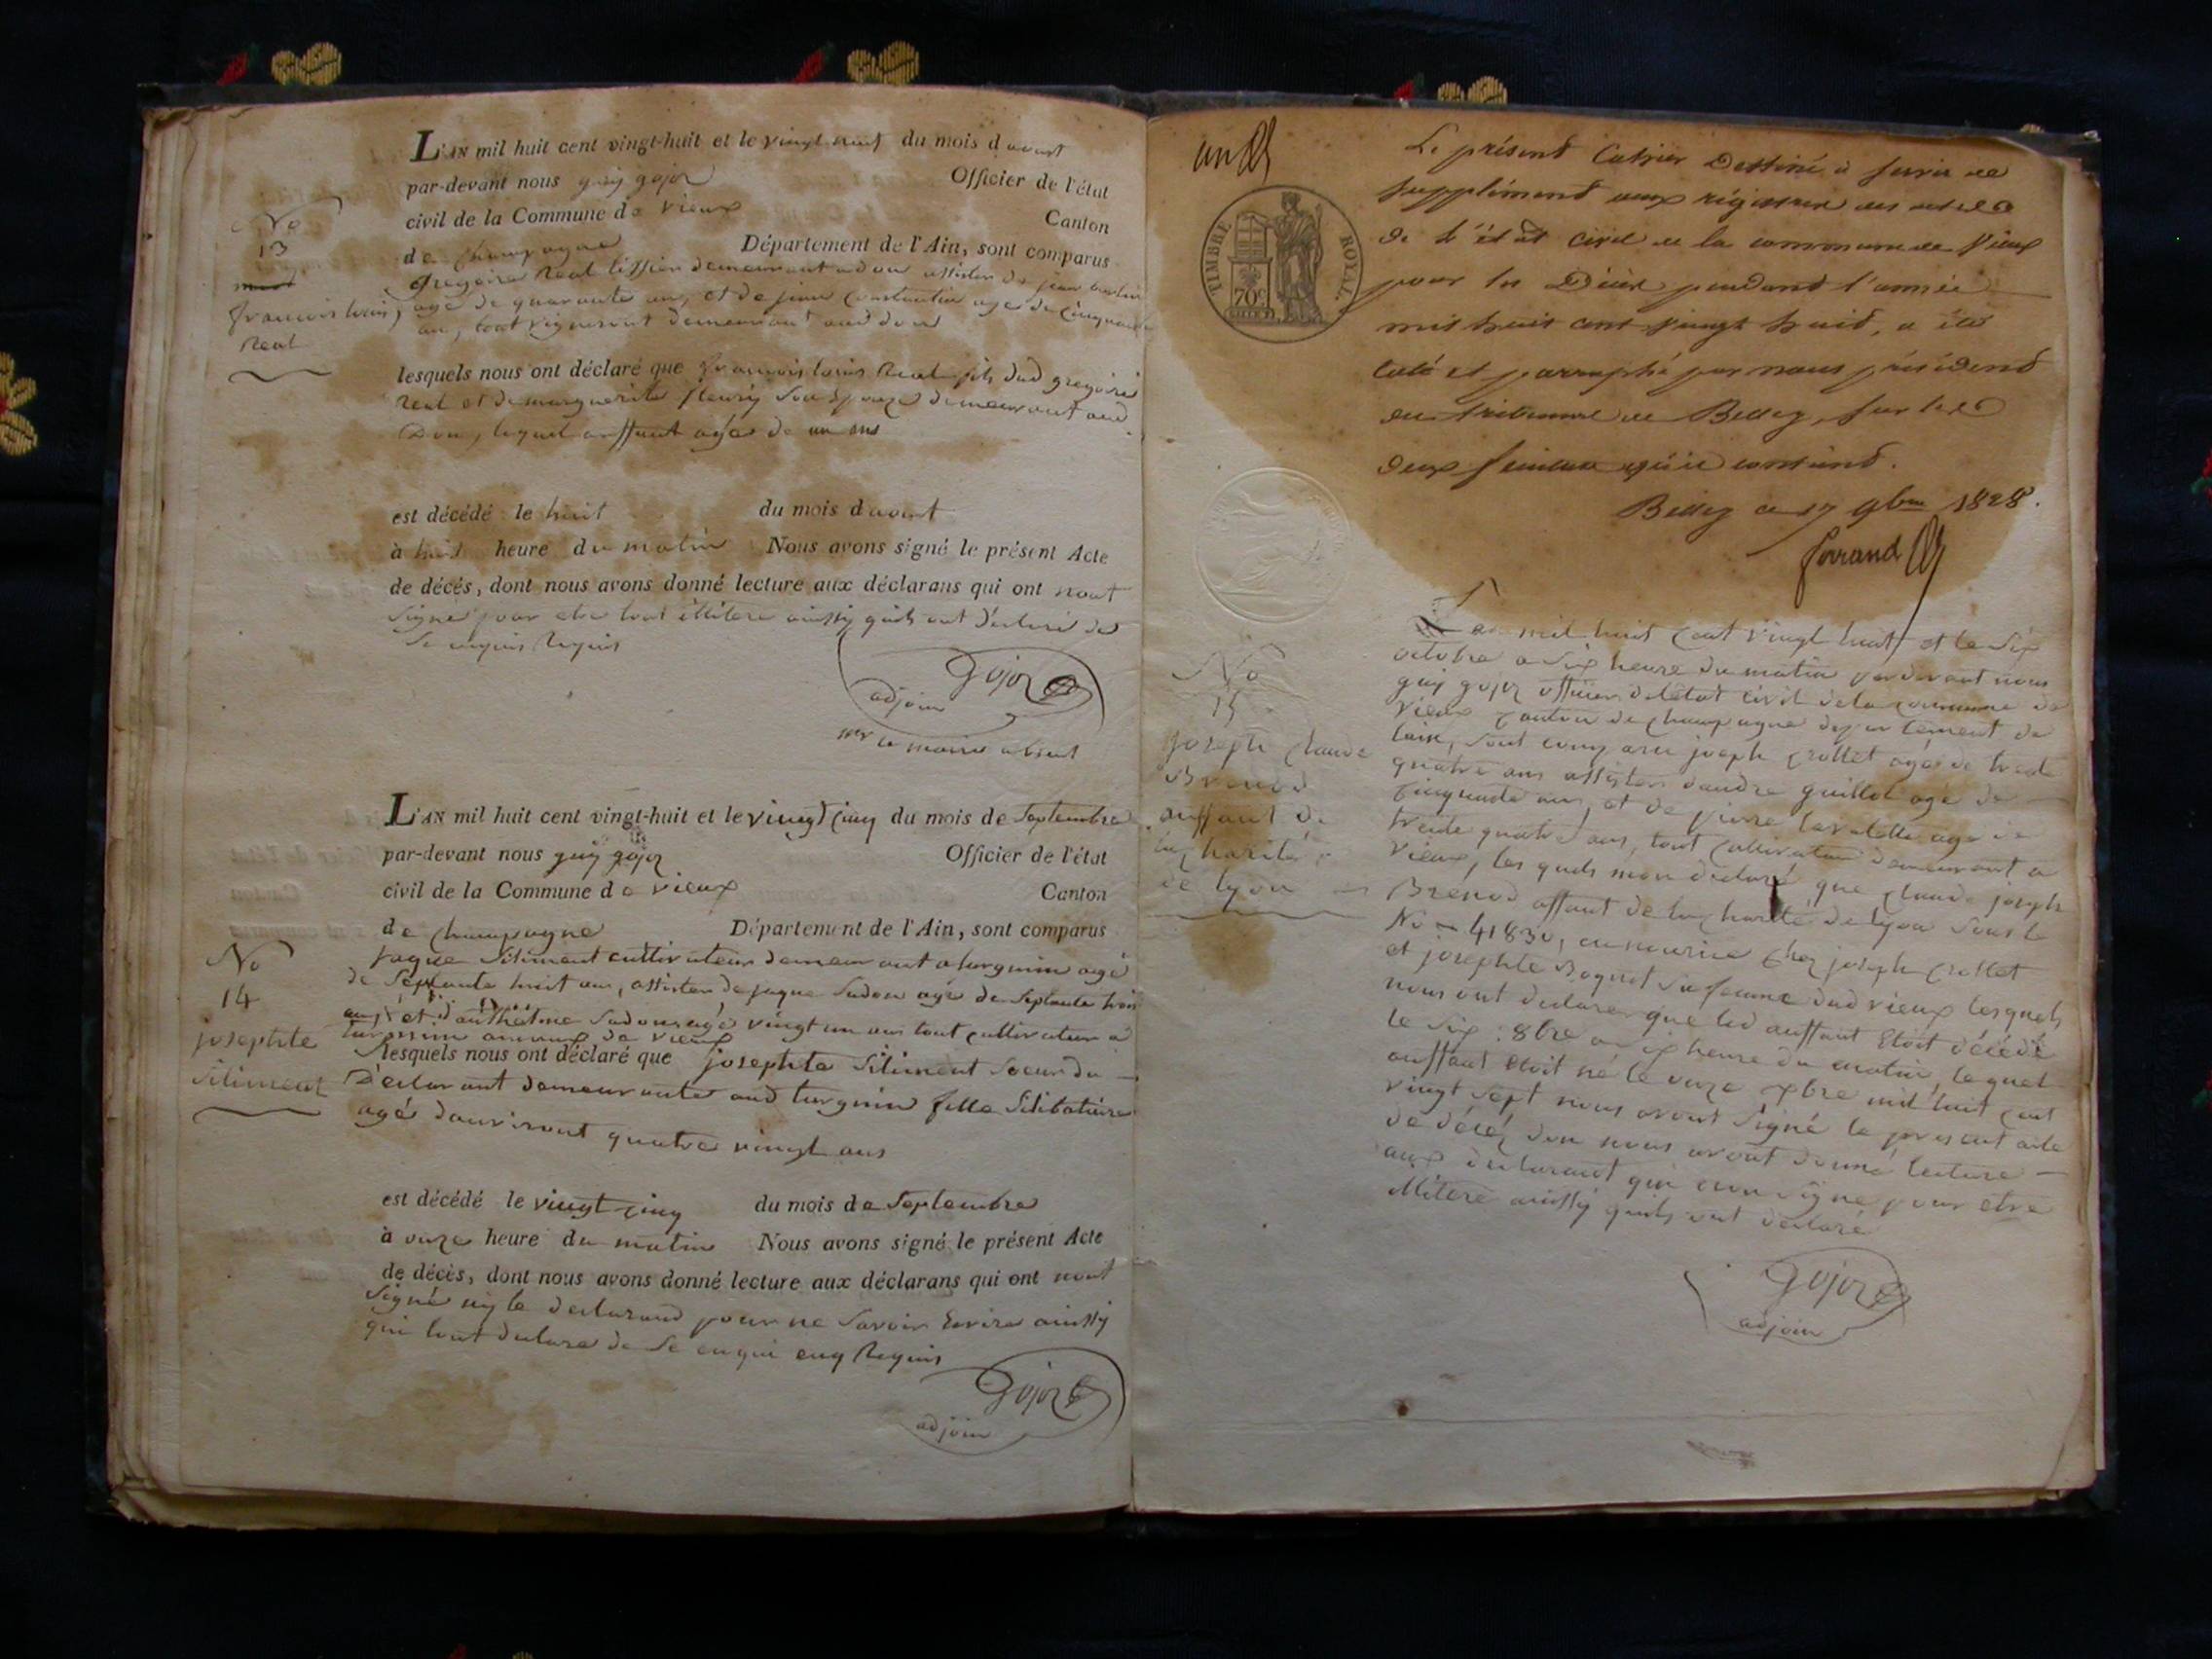 L'AN mil huit cent vingt-huit et le vingt neuf du mois d auout
par-devant nous guÿ gojoz Officier de l'état
civil de la Commune de vieux Canton
de Champagne Département de l'Ain, sont comparus
gregoire Real demeurant a don assisten de jean
agé de quarante an, et de jean agé de Cinquante
an, tout vigneront demeurant aud don
No
13
francois louis
Real
lesquels nous ont déclaré que francois louis Real fils dud gregoire
Real et de marguerite fleurÿ son Epouze demeurant aud
Don, lequel anffant agée de un ans
est décédé le huit du mois d auout
à huit heure du matin Nous avons signé le présent Acte
de décés, dont nous avons donné lecture aux déclarans qui ont nont
signé pour etre tout illitere ainssÿ quils ont déclaré de
Se enquis Requis
Gojoz
adjoin
mr le maire absent
L'AN mil huit cent vingt-huit et le vingt cinq du mois de Septembre
par-devant nous guÿ gojoz Officier de l'état
civil de la Commune de vieux Canton
de Champagne Département de l'Ain, sont comparus
jaque Siliment cultivateur demeurant a turgnin agé
de Septante huit an, assisten de jaque Sudon agé de Septante trois
ans et danthelme Sudon agé vingt un an tout cultivateur a
turgnin de vieux
No
14
josephte
Siliment
lesquels nous ont déclaré que josephte Siliment Soeur du
Déclarant demeurante aud turgnin fille Silibataire
agé danviront quatre vingt ans
est décédé le vingt cinq du mois de Septembre
à onze heure du matin Nous avons signé le présent Acte
de décès, dont nous avons donné lecture aux déclarans qui ont nont
Signé nÿ le declarand pour ne Savoir Ecrire ainssÿ
qui lont declare de Se enqui enq Requis
Gojoz
adjoin
un
TIMBRE ROYAL.
70c
Le présent Cahier Destiné à servir de
supplément aux régistres des actes
de l'état civil de la commune de Vieux
pour les Décès pendant l'année
mil huit cent vingt huit, a été
coté et parraphé par nous président
du tribunal de Belley, sur les
deux feuilles qu'il contient.
Belley ce 17 9bre 1828.
ferrand
No
15
joseph Claude
Brenod
anffant de
la Charité
de lyon
Lan mil huit Cent vingt huit et le Six
octobre a Six heure du matin par devant nous
guÿ gojoz officier de létat civil de la commune de
vieux Canton de Champagne departement de
lain, Sont comparu joseph Crollet agée de trente
quatre ans assisten dandre guillot agé de
Cinquante ans, et de pierre lavalette age de
trente quatre ans, tout Cultivateur demeurant a
vieux, les quels mon declaré que Claude joseph
Brenod affant de la Charité de lyon Sous le
No 41830, en nourice Chez joseph Crollet
et josephte Boquet Sa femme dud vieux lesquels
nous ont declarer que led anffant Etoit décédé
le Six : 8bre a Six heure du matin, lequel
anffant etoit né le onze xbre mil huit Cent
vingt Sept nous avont Signé le present acte
de décéz don nous avont donné lecture
aux declarant qui non Signe pour etre
illitere ainssÿ quils ont declaré
Gojoz
adjoin